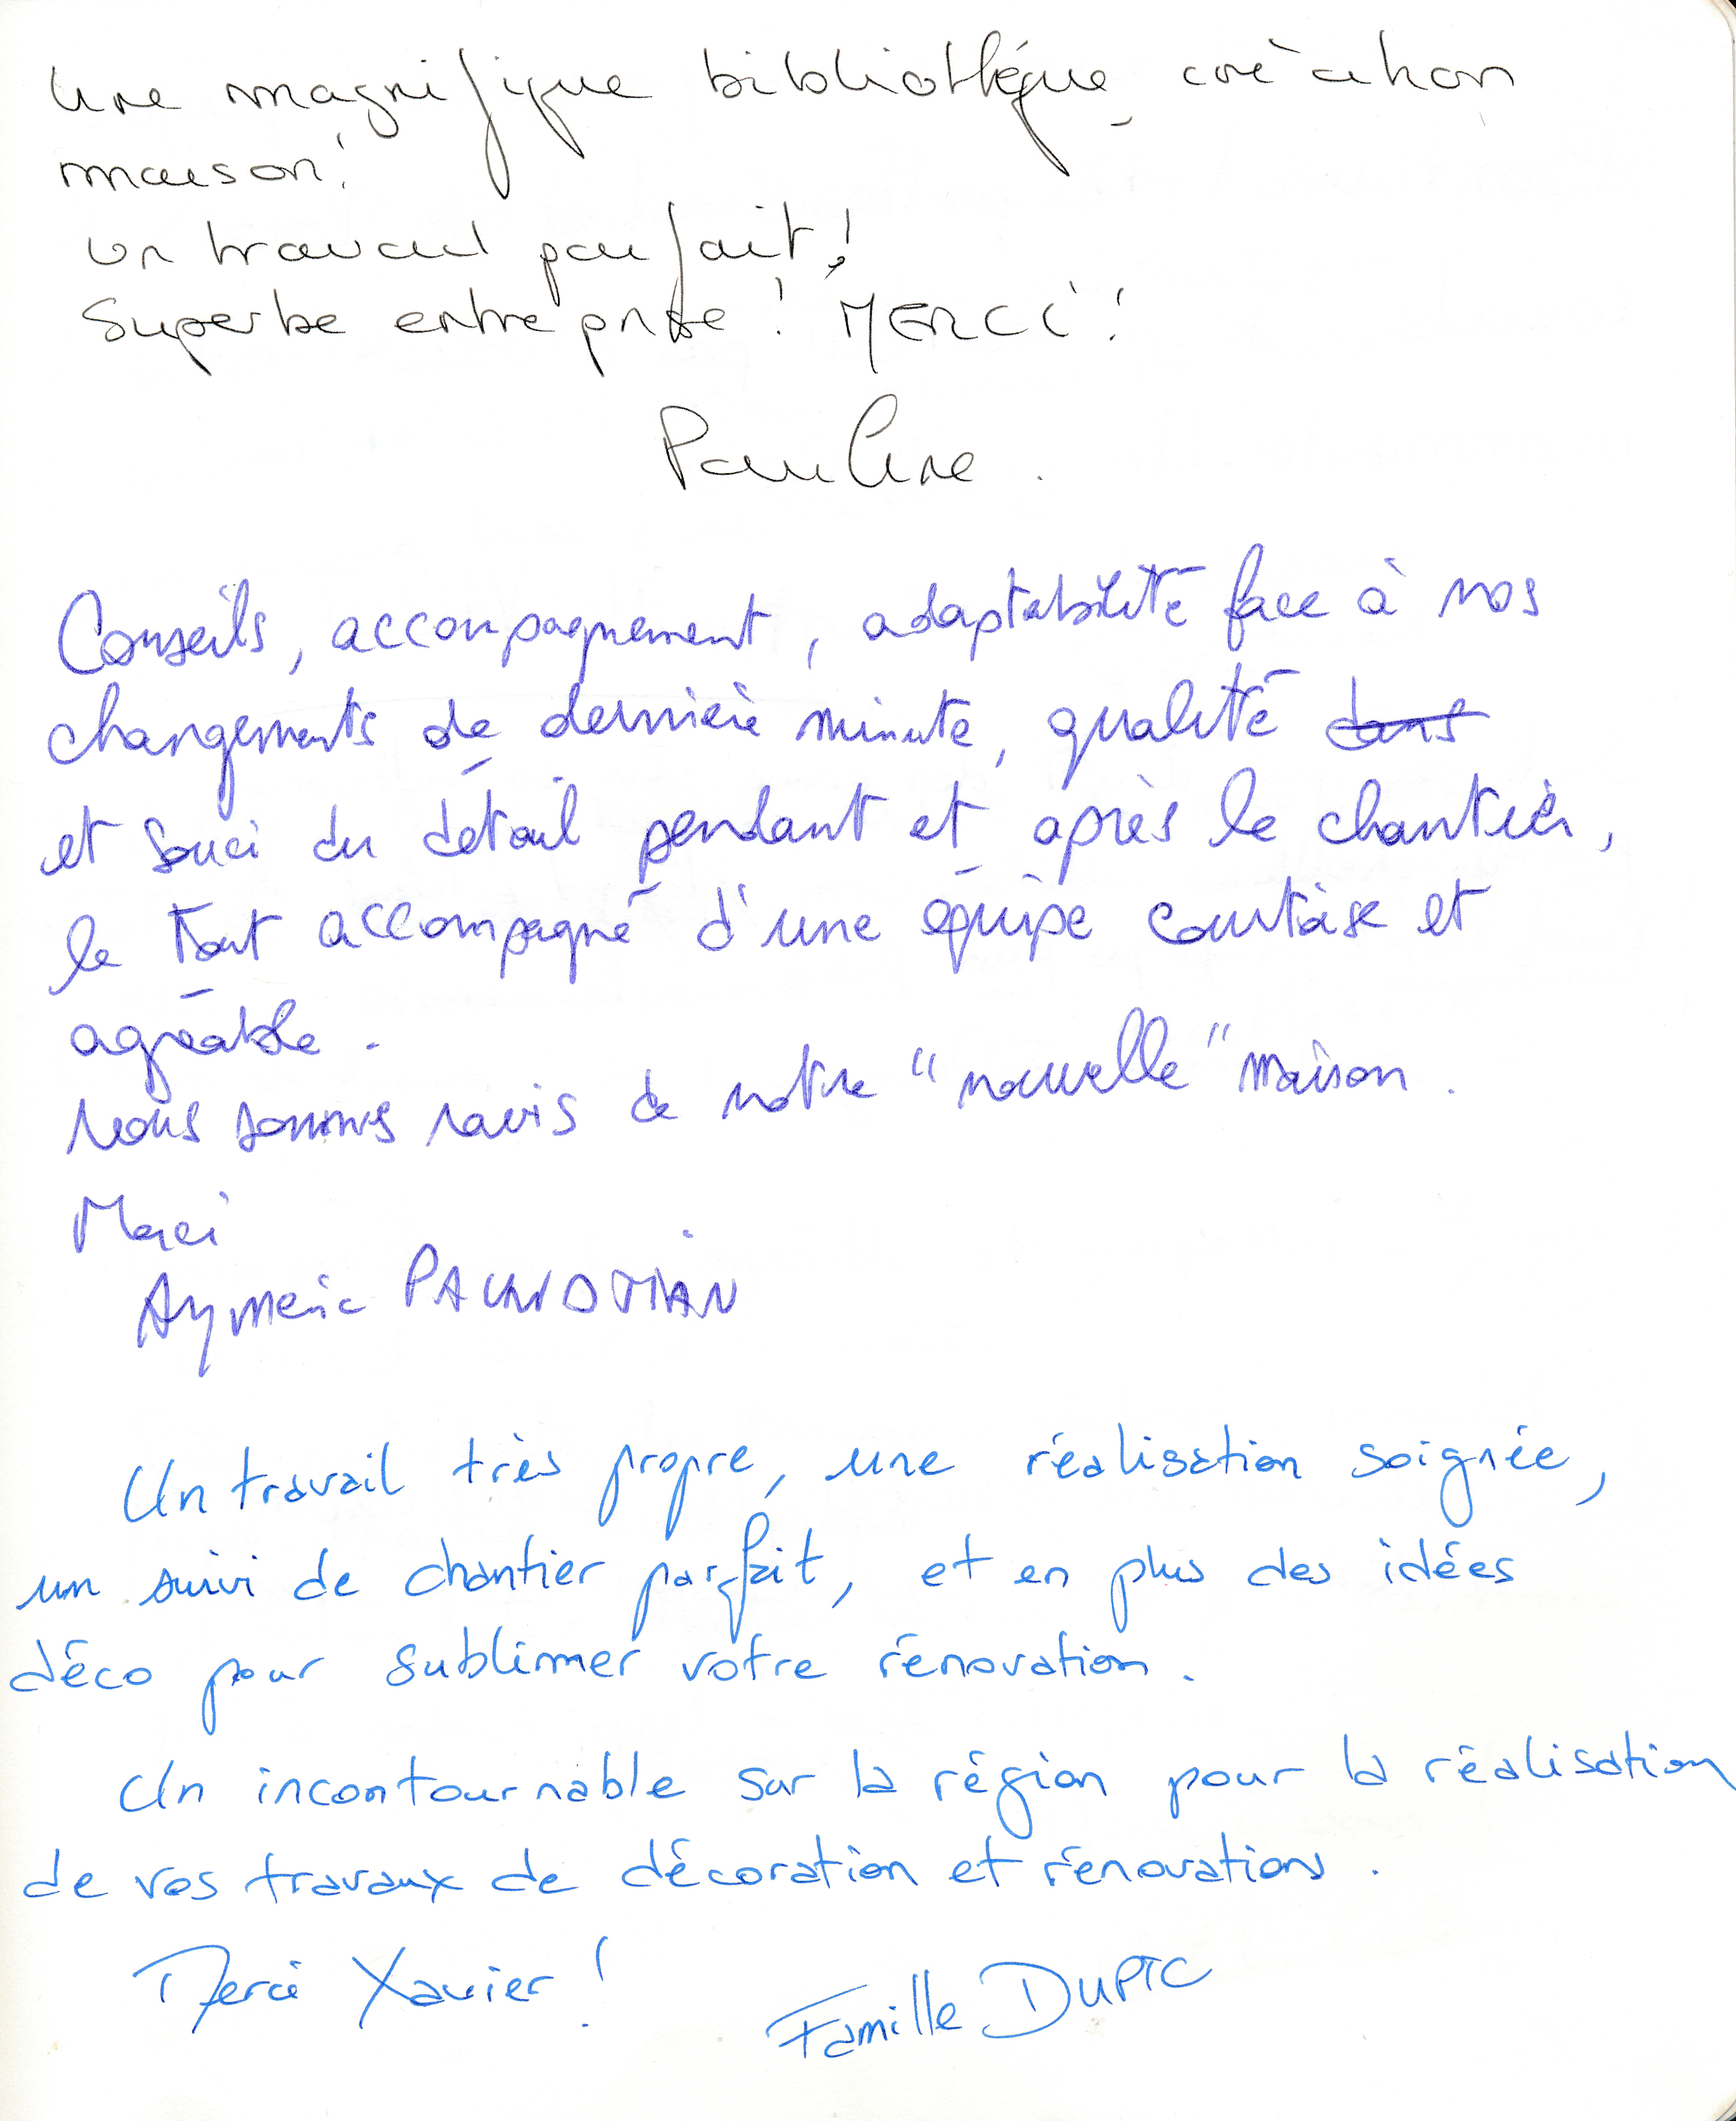 Une magnifique bibliothéque, création
maison!
un travail parfait!
Superbe entreprise! MERCI!
Pauline.
Conseils, accompagnement, adaptabilité face à nos
changements de dernière minute, qualité dans
et souci du détail pendant et après le chantier,
le tout accompagné d'une équipe courtoise et
agréable.
Nous sommes ravis de notre "nouvelle" maison.
Merci
Aymeric
Un travail très propre, une réalisation soignée,
un suivi de chantier parfait, et en plus des idées
déco pour sublimer votre rénovation.
Un incontournable sur la région pour la réalisation
de vos travaux de décoration et rénovations.
Merci Xavier!
Famille DUPIC